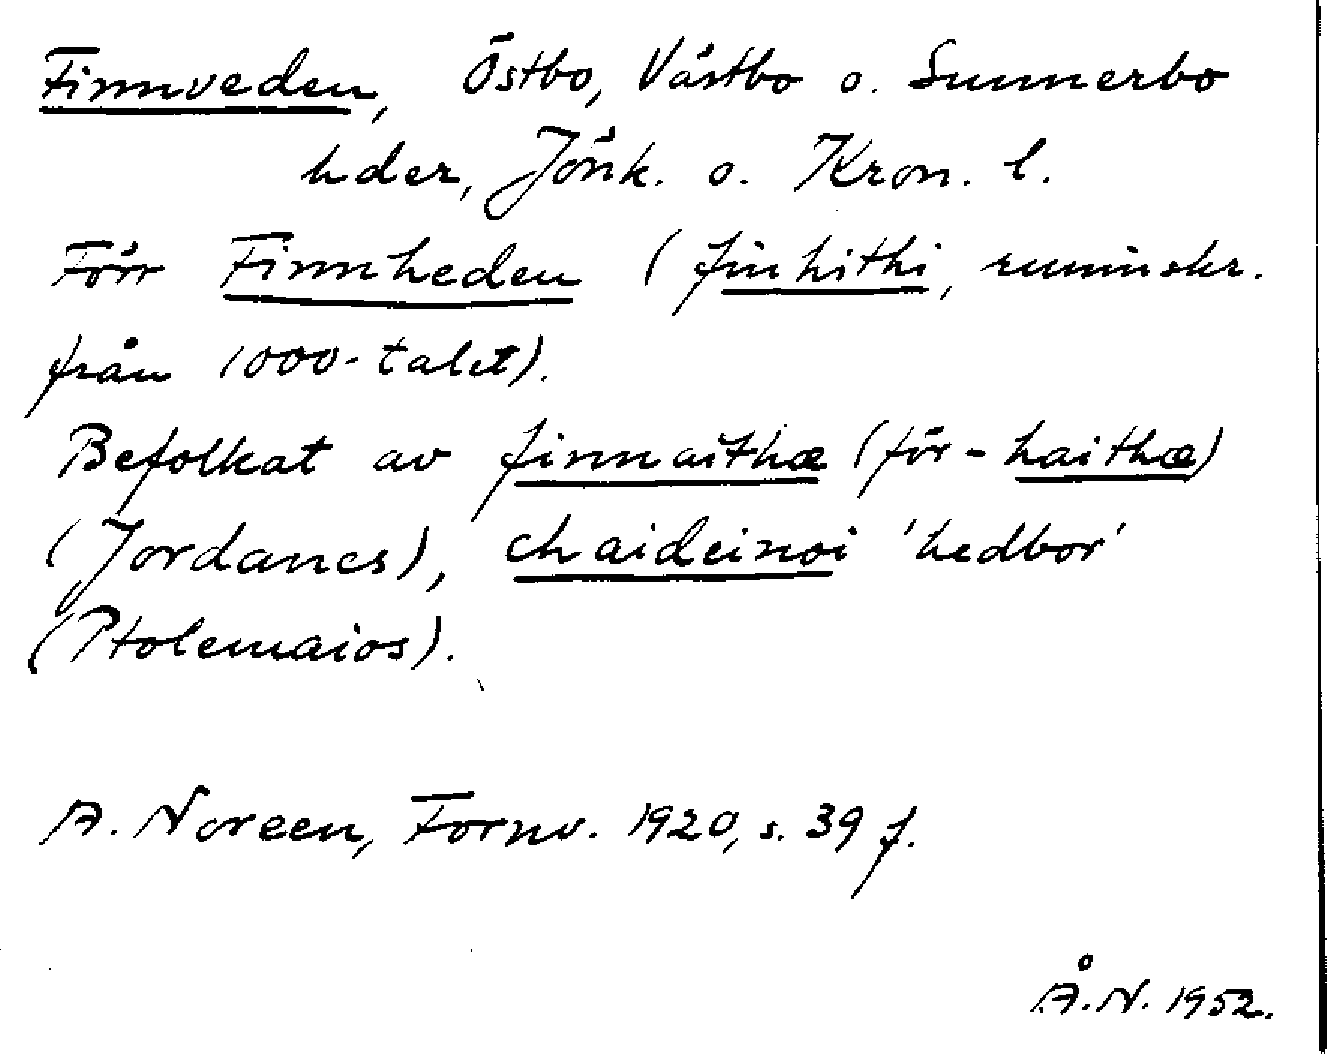 Finnveden, Östbo, Västbo o. Sunnerbo
hder, Jönk. o. Kron. l.
Förr Finnheden (finhithi, runinskr.
från 1000-talet).
Befolkat av finnaithæ (för -haithæ)
(Jordanes), chaideinoi 'hedbor'
(Ptolemaios).
A. Noreen, Fornv. 1920, s. 39 f.
Å.N. 1952.